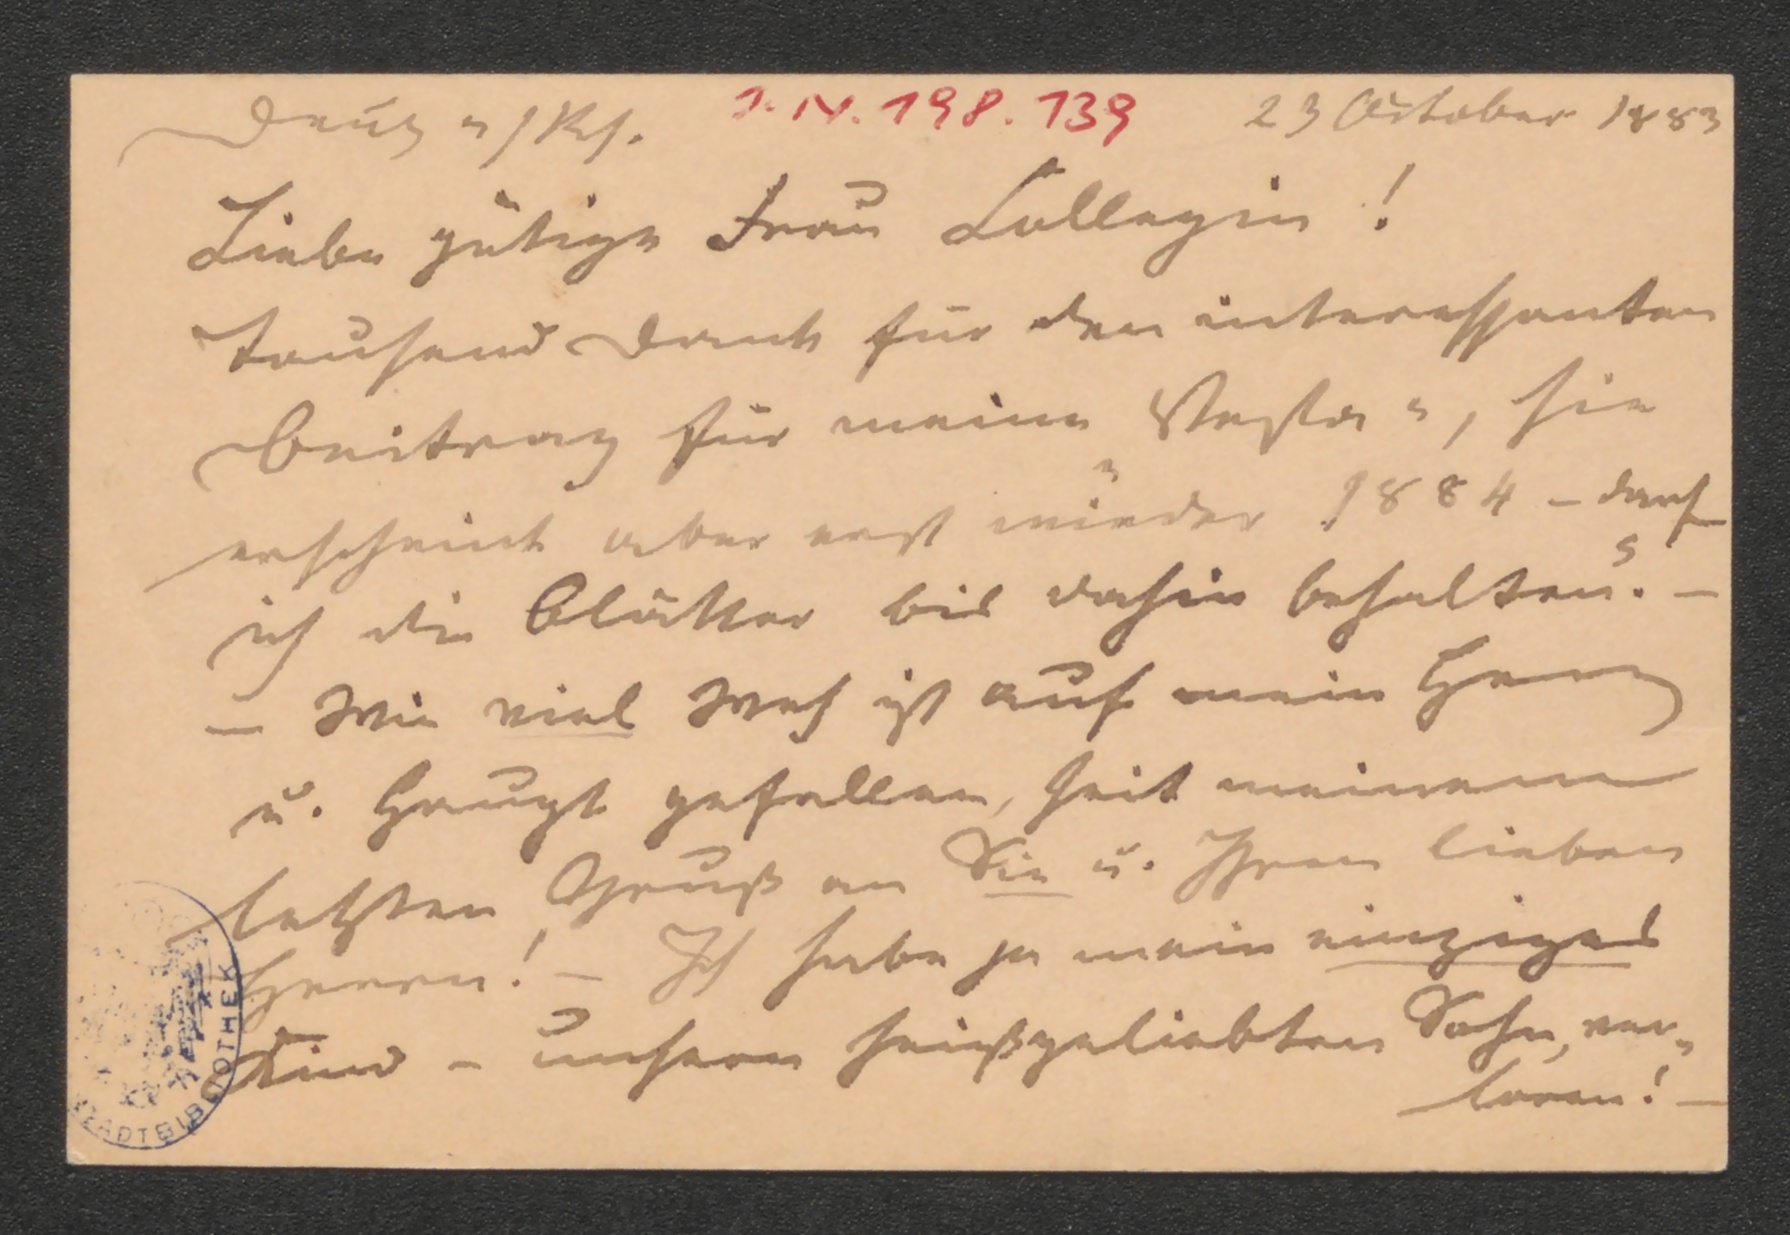 Deutz a/Rh. I.N.198.139 23 October 1883
Liebe gütige Frau Collegin!
Tausend Dank für den interessanten
Beitrag für meine Vesta, sie
erscheint aber erst wieder 1884 – darf
ich die Blätter bis dahin behalten? –
– Wie viel Weh ist auf mein Herz
u. Haupt gefallen, seit meinem
letzten Gruß an Sie u. Ihren lieben
Herrn! – Ich habe ja mein einziges
Kind – unsern heißgeliebten Sohn, ver-
loren! –
STADTBIBLIOTHEK